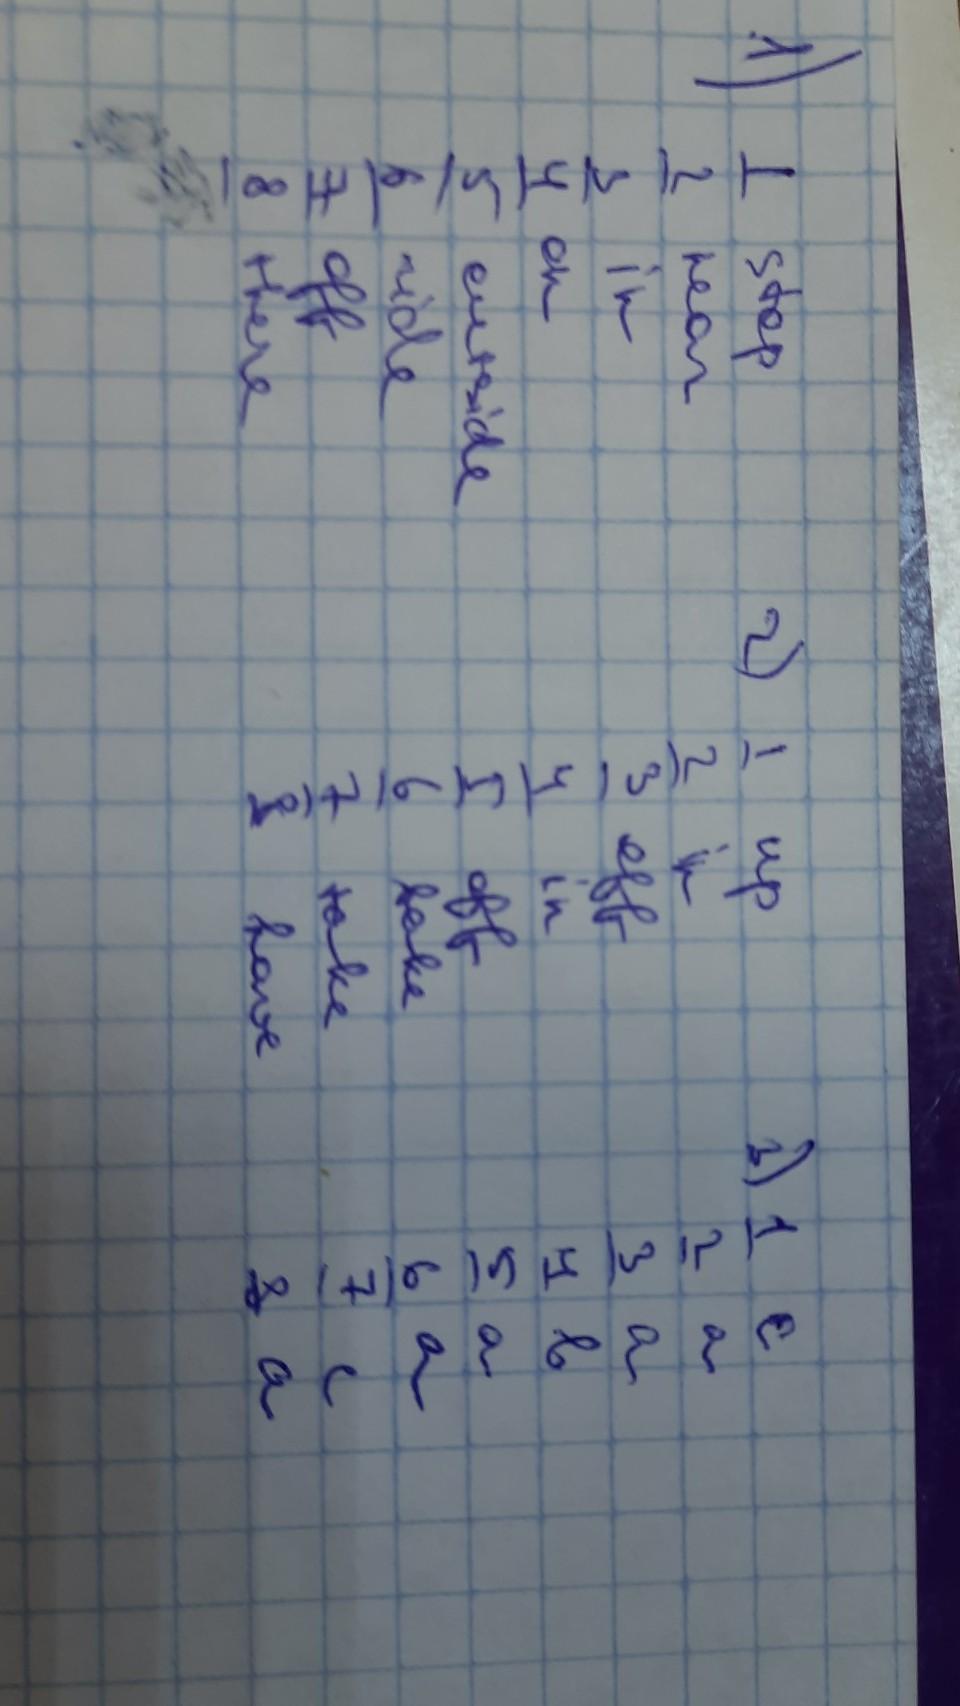 1)
1 stop
2 near
3 in
4 on
5 outside
6 ride
7 off
8 there
2)
1 up
2 in
3 off
4 in
5 off
6 take
7 take
8 have
3)
1 c
2 a
3 a
4 b
5 a
6 a
7 c
8 a